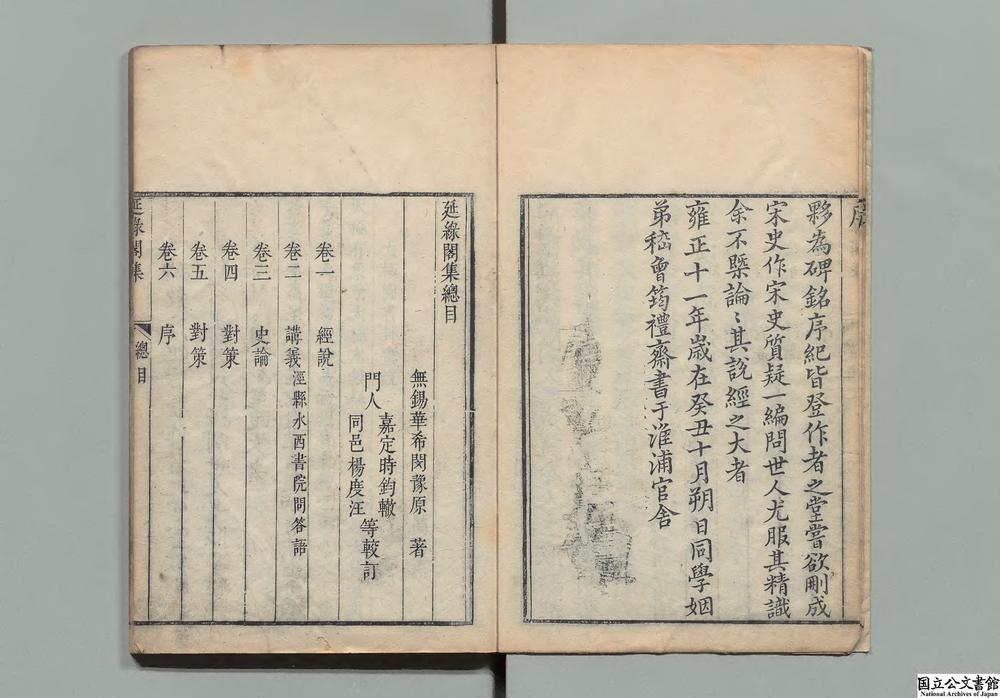 序
夥為碑銘序紀皆登作者之堂嘗欲刪成
宋史作宋史質疑一編問世人尤服其精識
余不槩論〻其說經之大者
雍正十一年歲在癸丑十月朔日同學姻
弟嵇曾筠禮齋書于淮浦官舍
延緣閣集總目
無錫華希閔豫原 著
門人
嘉定時鈞轍
同邑楊度汪
等較訂
卷一 經說
卷二 講義涇縣水西書院問答語
卷三 史論
卷四 對策
卷五 對策
卷六 序
延緣閣集
總目
国立公文書館
National Archives of Japan